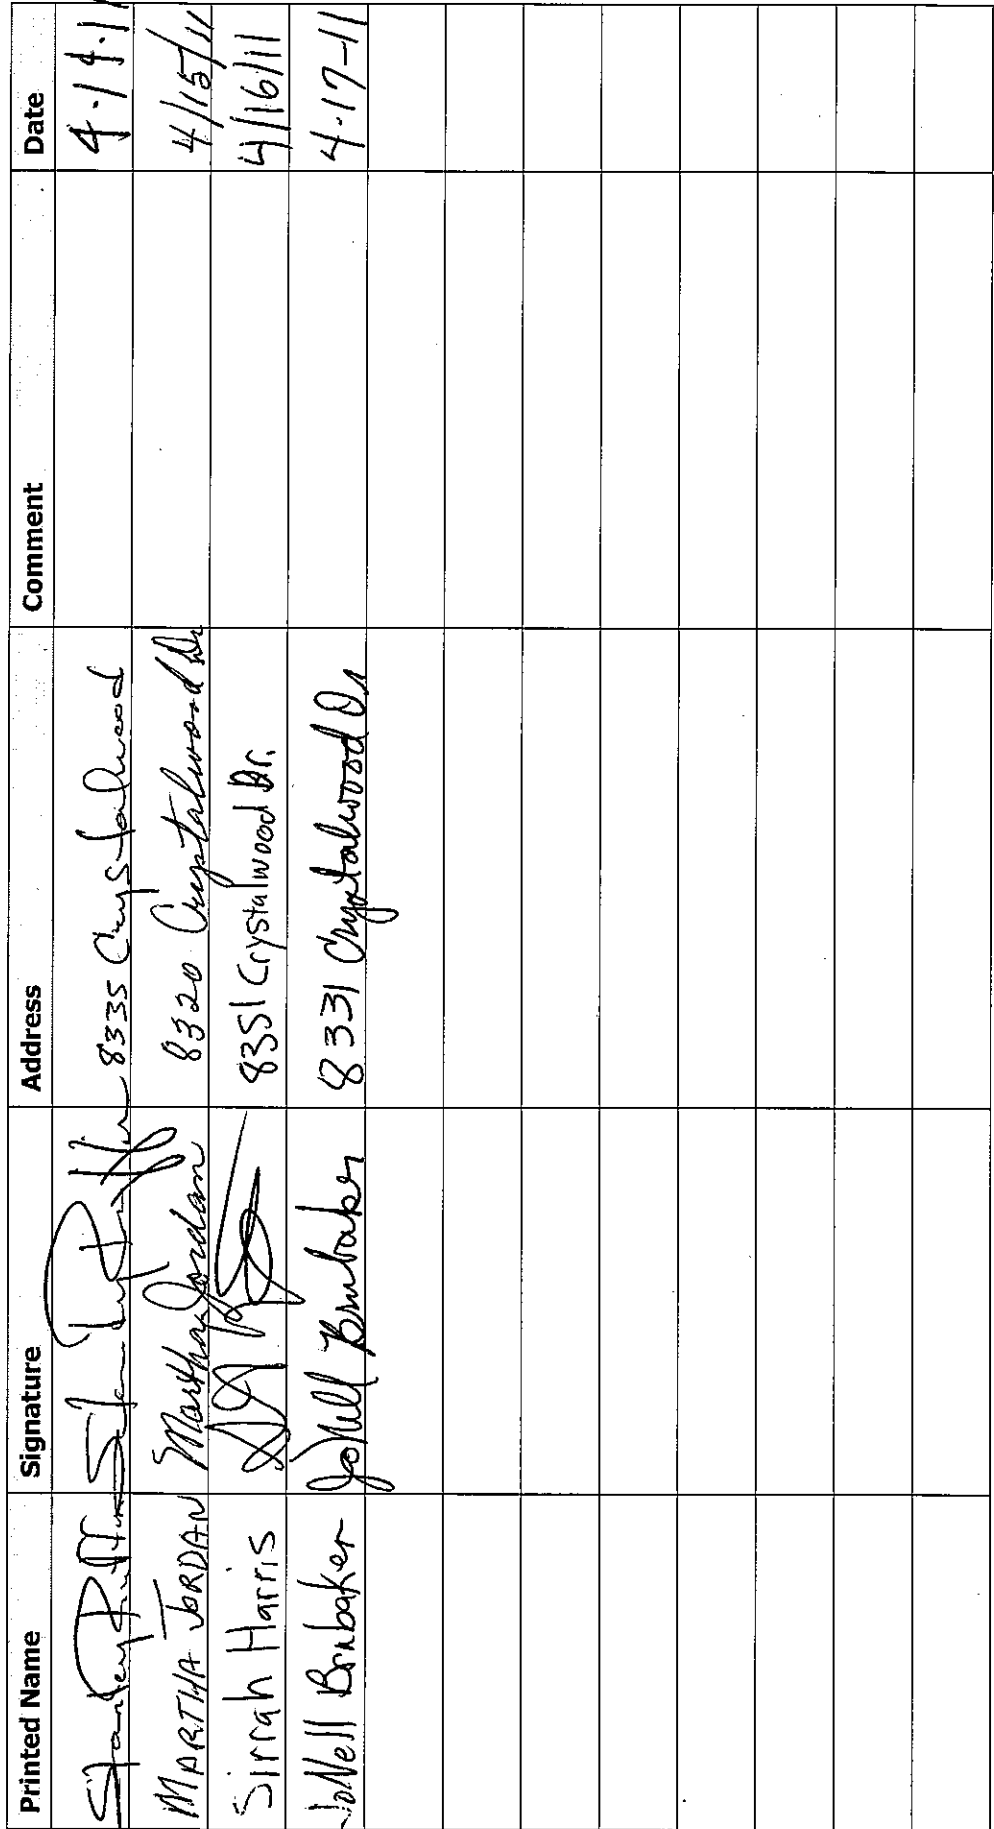 Printed Name Signature Address Comment Date
Stanley 8335 Crystalwood 4.14.11
MARTHA JORDAN Martha Jordan 8320 Crystalwood Dr 4/15/11
Sirrah Harris 8351 Crystalwood Dr. 4/16/11
JoNell Brubaker JoNell Brubaker 8331 Crystalwood Dr 4-17-11